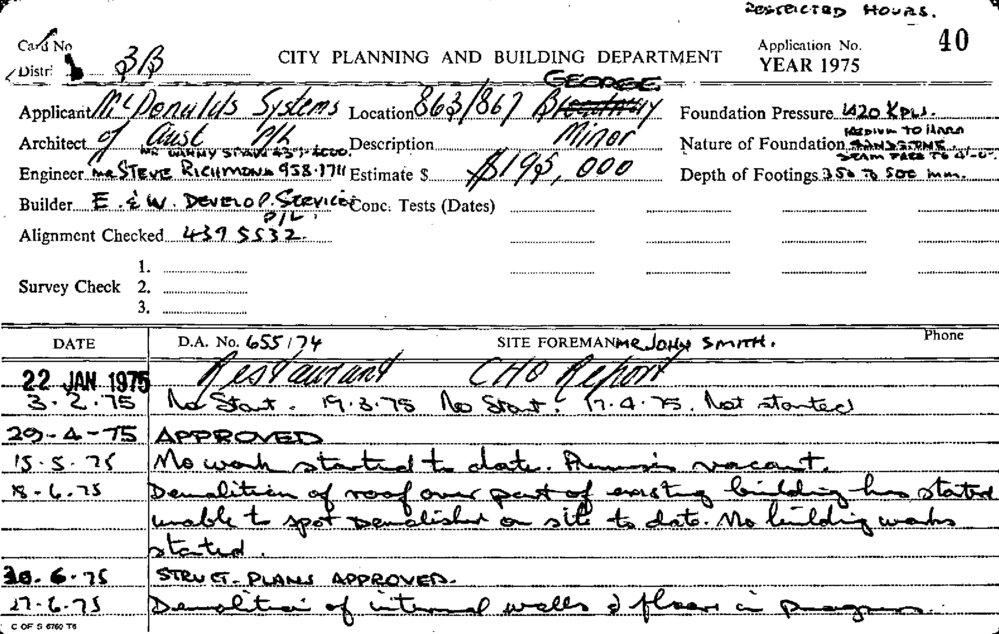 RESTRICTED HOURS.
Card No
Distri 3B
CITY PLANNING AND BUILDING DEPARTMENT
Application No. 40
YEAR 1975
GEORGE
Applicant McDonalds Systems Location 863/867 Broadway Foundation Pressure 420 KPa.
Architect of Aust P/L Description Minor Nature of Foundation MEDIUM TO HARD SANDSTONE.
SEAM FREE TO 4'-0".
Engineer MR STEVE RICHMOND 958.1711 Estimate $ $195,000 Depth of Footings 350 TO 500 mm.
Builder E. & W. DEVELOP. SERVICES P/L. Conc. Tests (Dates)
Alignment Checked 439 5532.
1.
Survey Check 2.
3.
DATE D.A. No. 655/74 SITE FOREMAN MR JOHN SMITH. Phone
22 JAN 1975 Restaurant CHO Report
3.2.75 No Start. 19.3.75 No Start. 17.4.75. Not started
29-4-75 APPROVED
15.5.75 No work started to date. Premises vacant.
18-6.75 Demolition of roof over part of existing building has started
unable to spot Demolisher on site to date. No building works
started.
6.75 STRUCT. PLANS APPROVED.
27-6.75 Demolition of internal walls & floors in progress.
C OF S 6760 T6